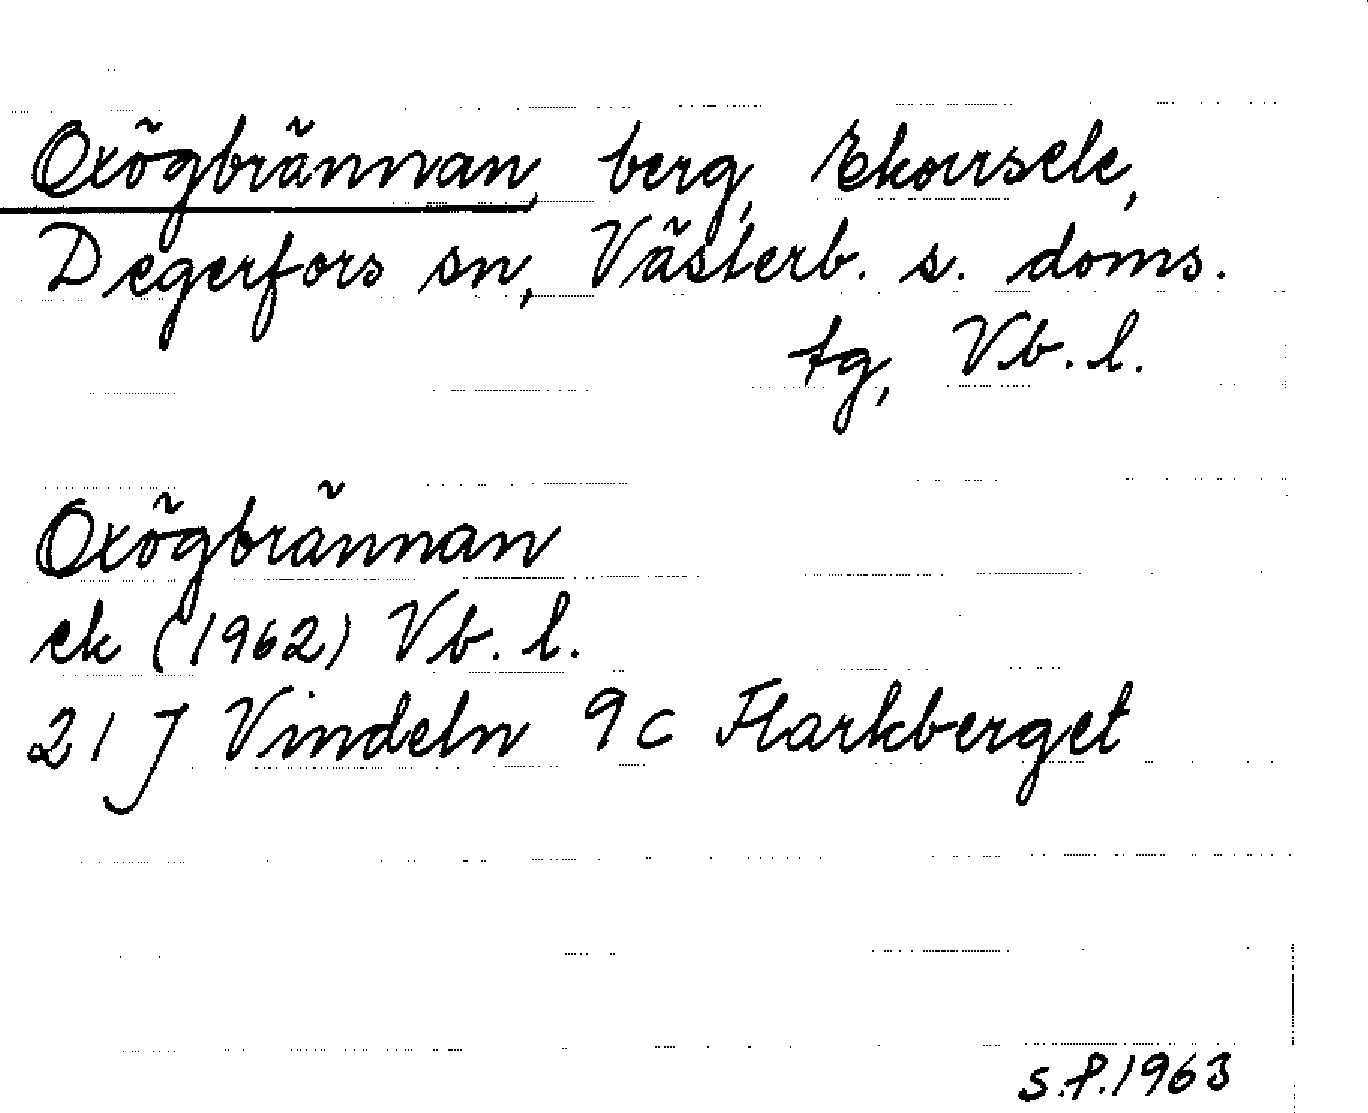 Oxögbrännan, berg, Ekorrsele,
Degerfors sn, Västerb. s. doms.
tg, Vb. l.
Oxögbrännan
ek (1962) Vb. l.
21 J Vindeln 9 c Flarkberget
S.P. 1963